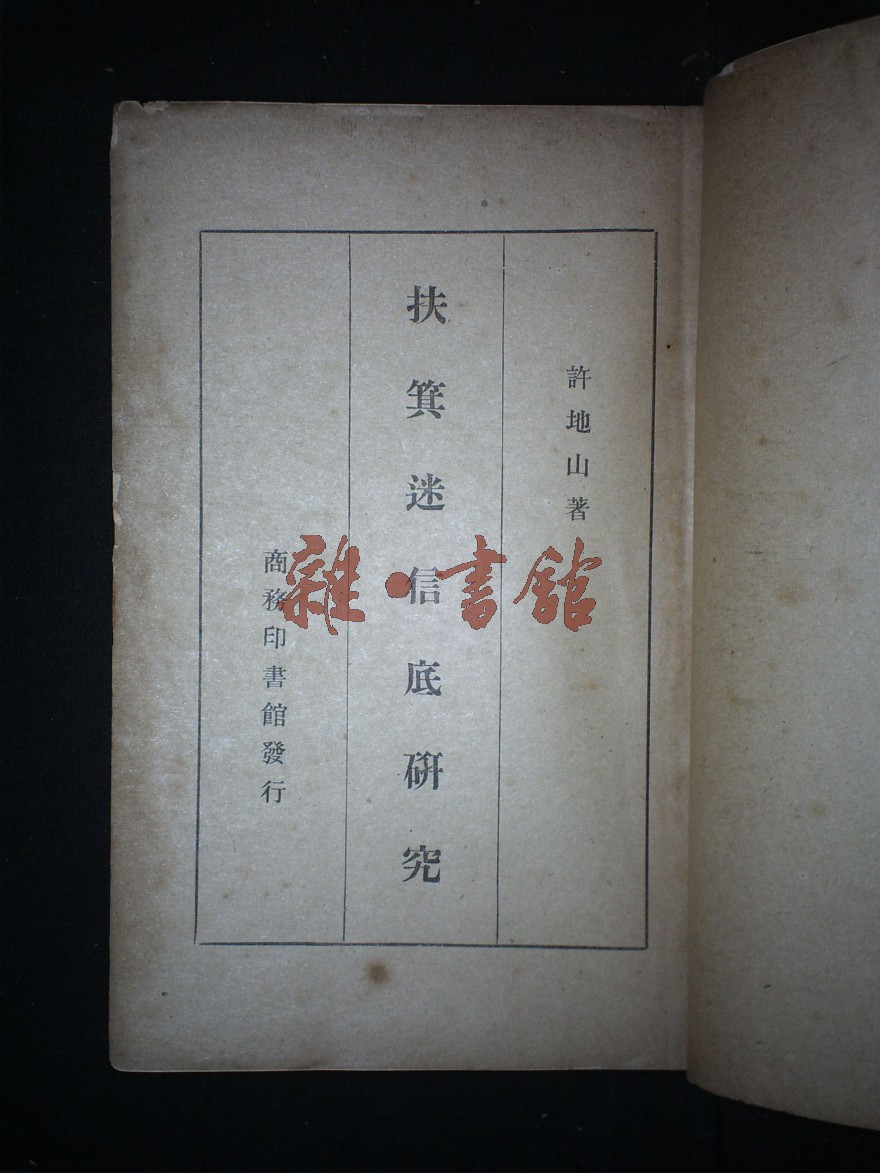 許地山著
扶箕迷信底研究
商務印書館發行
雜·書館